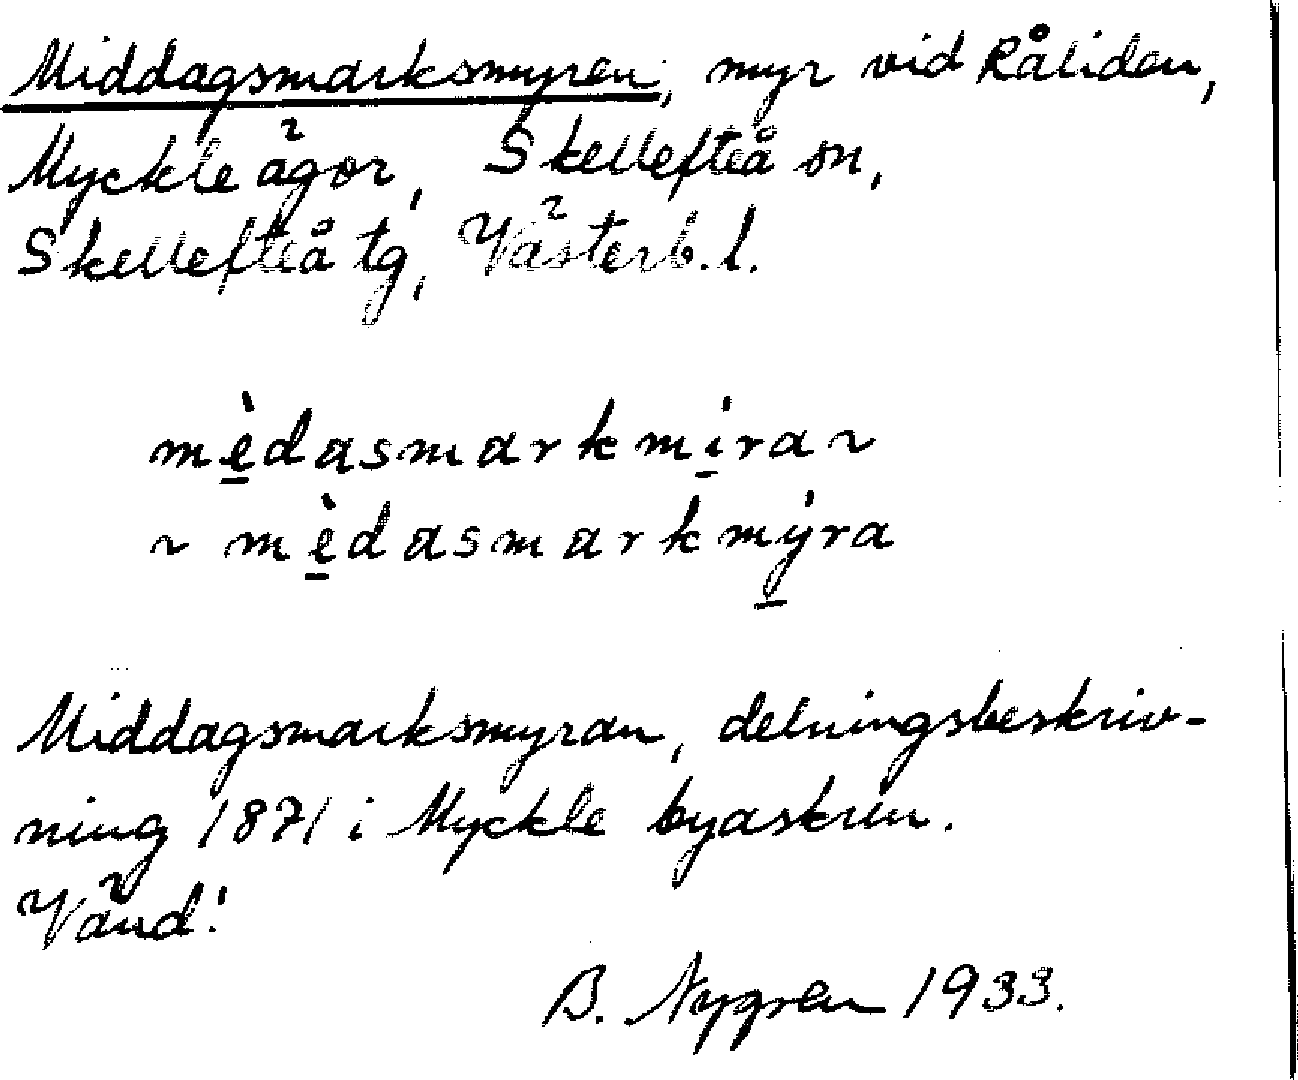 Middagsmarksmyren, myr vid Råliden,
Myckle ägor, Skellefteå sn,
Skellefteå tg, Västerb. l.
mè̱dasmarkmí̱ra ~
~ mè̱dasmarkmý̱ra
Middagsmarksmyran, delningsbeskriv-
ning 1871 i Myckle byaskrin.
Vänd!
B. Nygren 1933.